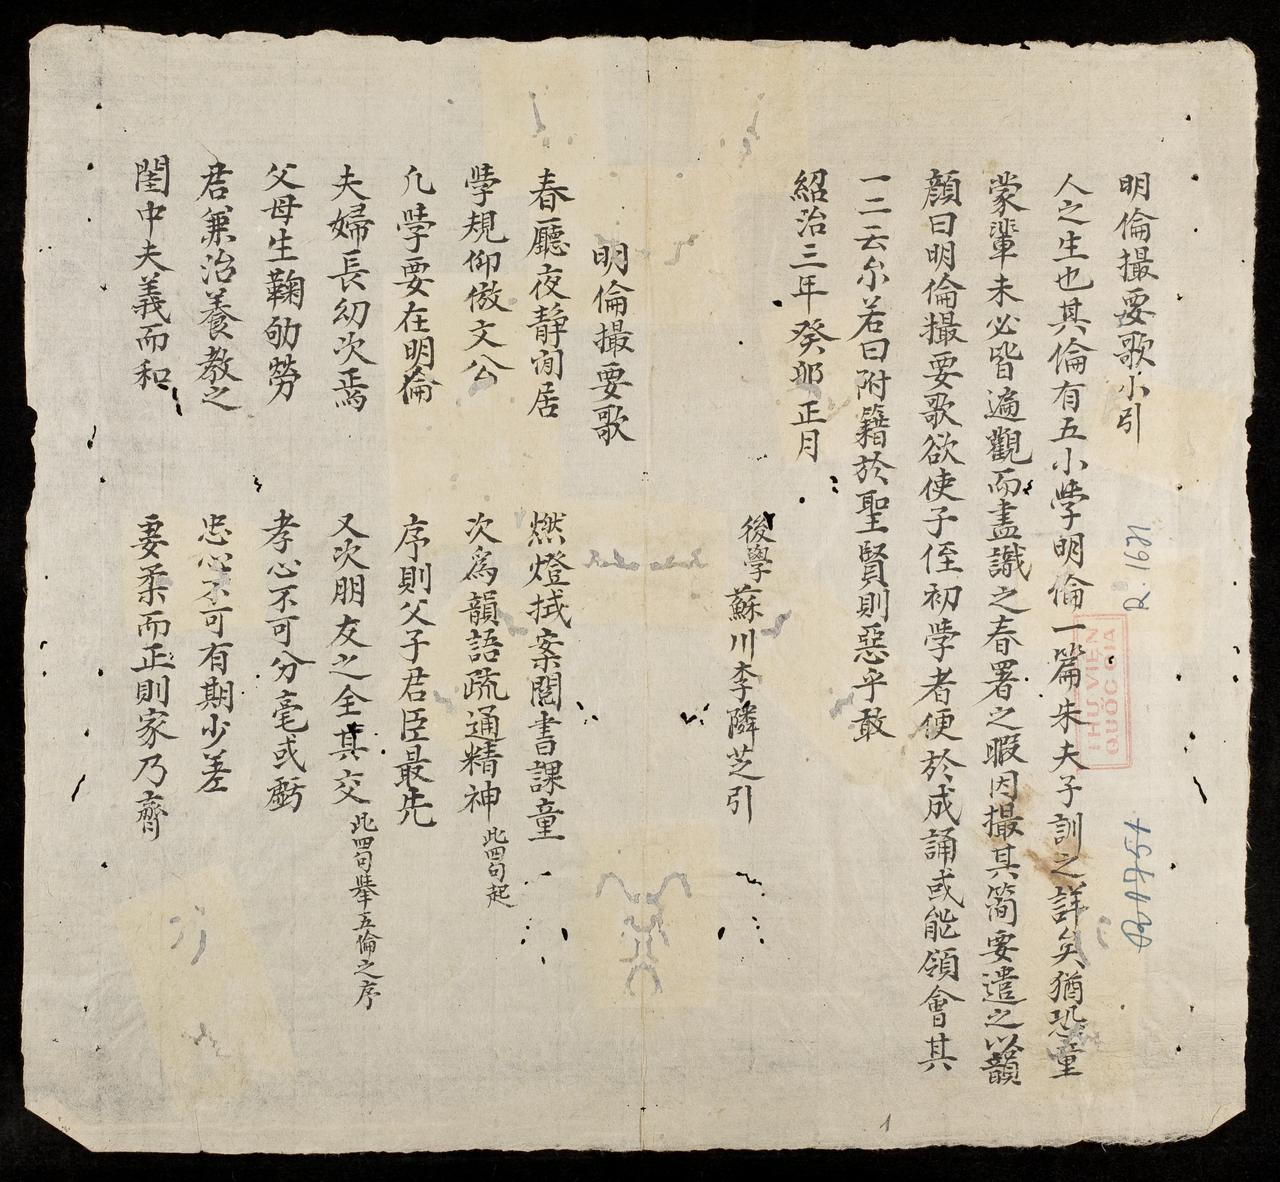 明倫撮要歌小引
人之生也其倫有五小學明倫一篇朱夫子訓之詳矣猶恐童
蒙輩未必皆遍觀而盡識之春署之暇因撮其簡要遣之以韻
顏曰明倫撮要歌欲使子侄初學者便於成誦或能領會其
一二云尔若曰附籍於聖賢則惡乎敢
紹治三年癸卯正月
後學蘇川李隣芝引
明倫撮要歌
春廳夜靜閒居 燃燈拭案閱書課童
學規仰倣文公 次為韻語疏通精神 此四句起
凡學要在明倫 序則父子君臣最先
夫婦長幼次焉 又次朋友之全其交 此四句舉五倫之序
父母生鞠劬勞 孝心不可分毫或虧
君兼治養教之 忠心不可有期少差
閨中夫義而和 妻柔而正則家乃齊
R.1621
THƯ VIỆN
QUỐC GIA
1